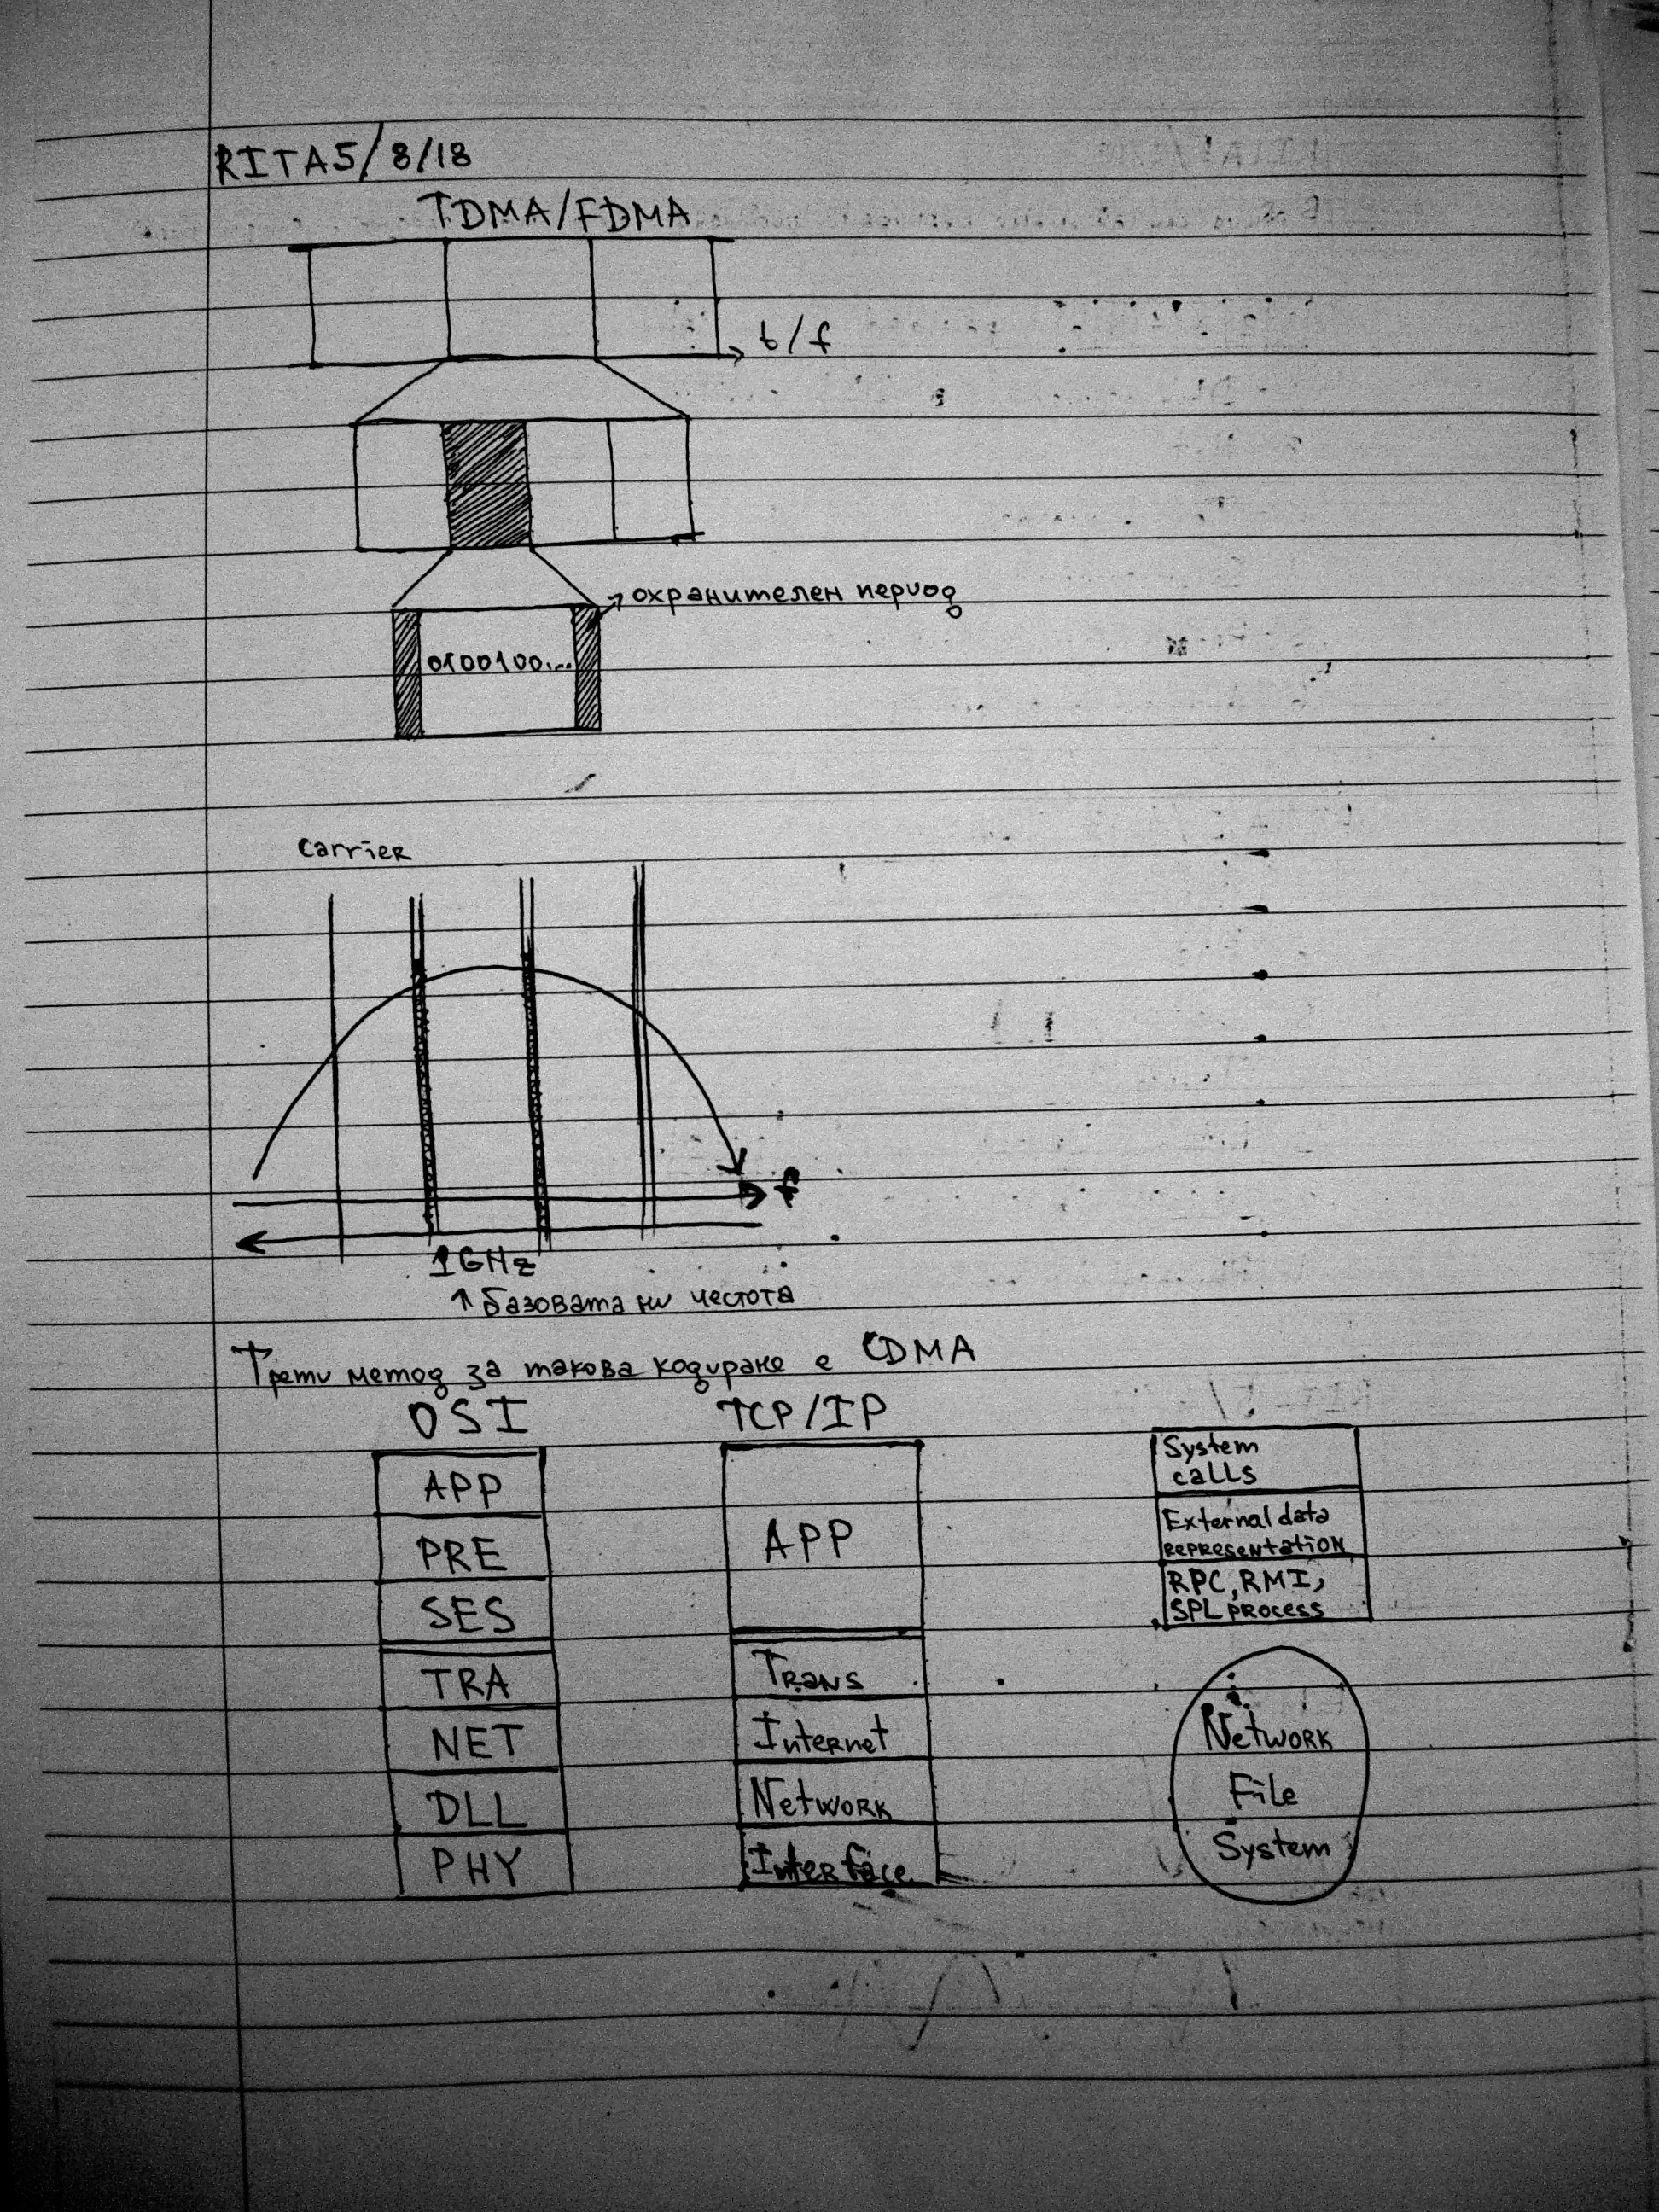 RITA5/8/18
TDMA/FDMA
t/f
охранителен период
0100100...
carrier
f
1GHz
↑ базовата ни честота
Трети метод за такова кодиране е CDMA
OSI
APP
PRE
SES
TRA
NET
DLL
PHY
TCP/IP
APP
Trans
Internet
Network
Interface
System
calls
External data
representation
RPC, RMI,
SPL process
Network
File
System